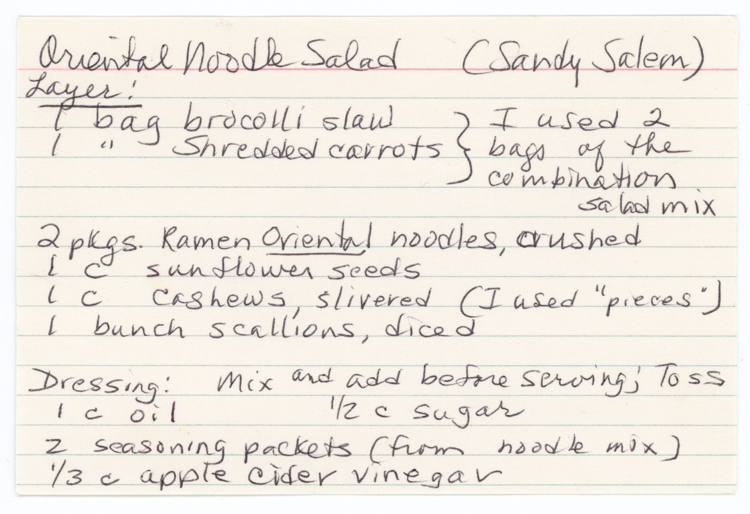 Oriental Noodle Salad (Sandy Salem)
Layer:
1 bag brocolli slaw } I used 2
1 " Shredded carrots } bags of the
combination
salad mix
2 pkgs. Ramen Oriental noodles, crushed
1 c sunflower seeds
1 c cashews, slivered (I used "pieces")
1 bunch scallions, diced
Dressing: Mix and add before serving; Toss
1 c oil 1/2 c sugar
2 seasoning packets (from noodle mix)
1/3 c apple cider vinegar